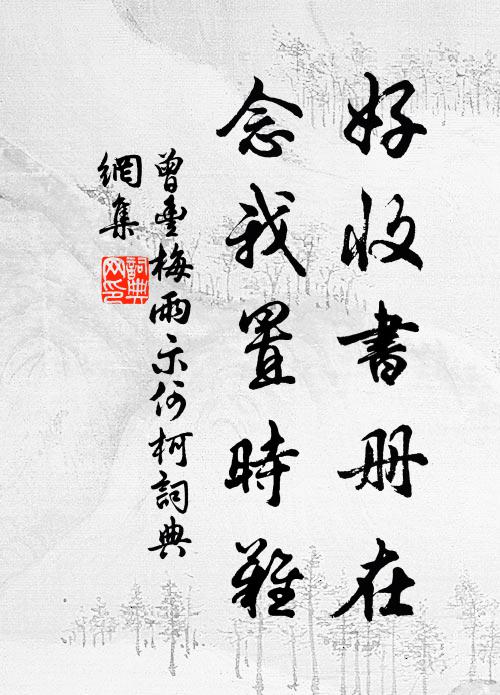 好收書册在
念我置時難
曾豐梅雨示何柯詞典
網集
詞典網印